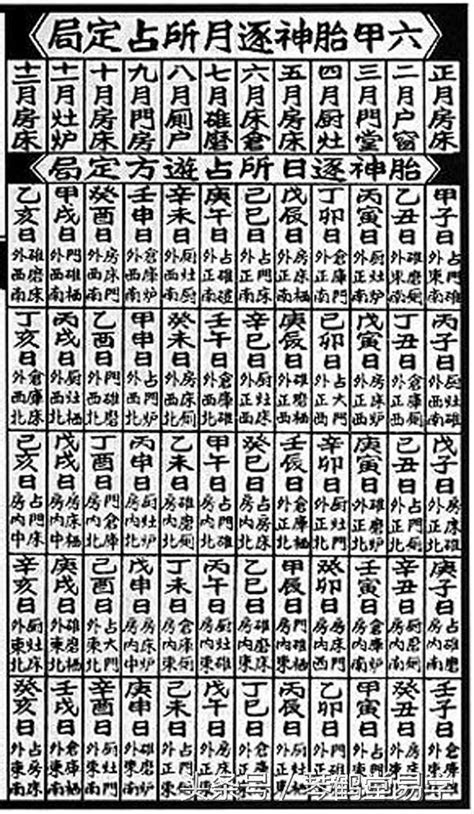 六甲胎神逐月所占定局
正月房床
二月户窗
三月門堂
四月厨灶
五月房床
六月床倉
七月碓磨
八月厠户
九月門房
十月房床
十一月灶炉
十二月房床
胎神逐日所占遊方定局
甲子日 占門碓 外東南
乙丑日 碓磨厠 外東南
丙寅日 厨灶炉 外正南
丁卯日 倉庫門 外正南
戊辰日 房床栖 外正南
己巳日 占門床 外正南
庚午日 占碓 外正南
辛未日 厨灶厠 外西南
壬申日 倉庫炉 外西南
癸酉日 房床門 外西南
甲戌日 門碓栖 外西南
乙亥日 碓磨床 外西南
丙子日 厨灶碓 外西南
丁丑日 倉庫厠 外正西
戊寅日 房床炉 外正西
己卯日 占大門 外正西
庚辰日 碓磨栖 外正西
辛巳日 厨灶床 外正西
壬午日 倉庫碓 外西北
癸未日 房床厠 外西北
甲申日 占門炉 外西北
乙酉日 碓磨門 外西北
丙戌日 厨灶栖 外西北
丁亥日 倉庫床 外西北
戊子日 房床碓 外正北
己丑日 占門厠 外正北
庚寅日 碓磨炉 外正北
辛卯日 厨灶門 外正北
壬辰日 倉庫栖 外正北
癸巳日 占房床 房内北
甲午日 占門碓 房内北
乙未日 碓磨厠 房内北
丙申日 厨灶炉 房内北
丁酉日 倉庫門 房内北
戊戌日 房床栖 房内中
己亥日 占門床 房内中
庚子日 占碓磨 房内南
辛丑日 厨灶厠 房内南
壬寅日 倉庫炉 房内南
癸卯日 房床門 房内西
甲辰日 門栖 房内東
乙巳日 碓磨床 房内東
丙午日 厨灶碓 房内東
丁未日 倉庫厠 房内東
戊申日 房床炉 房内中
己酉日 占大門 外東北
庚戌日 碓磨栖 外東北
辛亥日 厨灶床 外東北
壬子日 倉庫
癸丑日
甲寅日
乙卯日
丙辰日
丁巳日
戊午日
己未日
庚申日 碓磨炉 外東南
辛酉日 厨灶門 外東南
壬戌日 倉庫栖 外東南
癸亥日 占房床 外東南
头条号 / 琴鹤堂易学